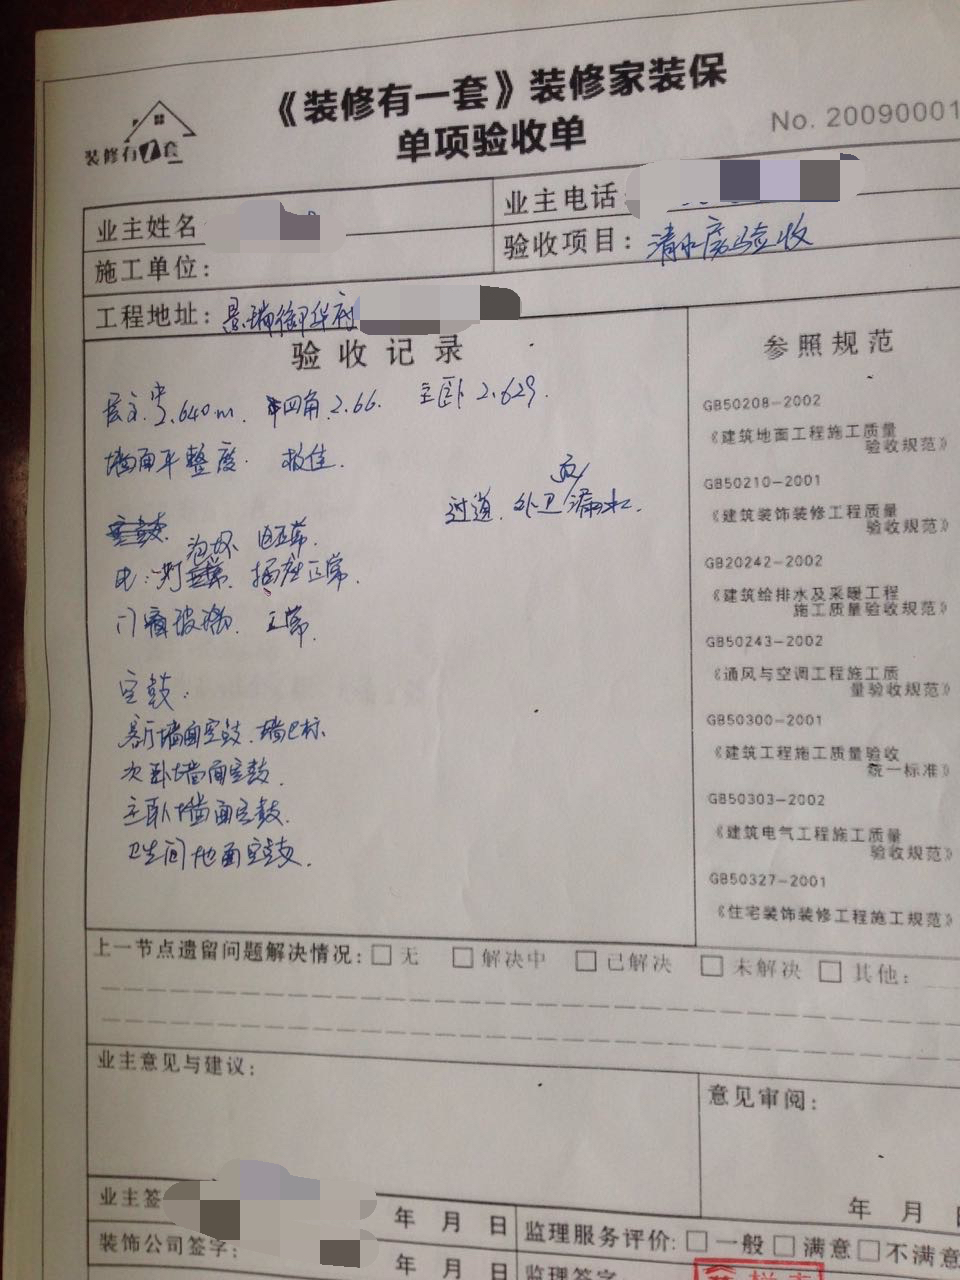 《装修有一套》装修家装保
单项验收单
No. 20090001
装修有1套
业主姓名
业主电话
施工单位:
验收项目: 清水房验收
工程地址: 景瑞御华府
验收记录
参照规范
2.640m. 四角.2.66. 主卧2.629.
墙面平整度.
过道. 外卫 漏水.
正常.
电: 灯 插座正常.
门窗玻璃. 正常.
空鼓:
客厅墙面空鼓.
次卧墙面空鼓.
主卧墙面空鼓.
卫生间地面空鼓.
GB50208-2002
《建筑地面工程施工质量
验收规范》
GB50210-2001
《建筑装饰装修工程质量
验收规范》
GB20242-2002
《建筑给排水及采暖工程
施工质量验收规范》
GB50243-2002
《通风与空调工程施工质
量验收规范》
GB50300-2001
《建筑工程施工质量验收
统一标准》
GB50303-2002
《建筑电气工程施工质量
验收规范》
GB50327-2001
《住宅装饰装修工程施工规范》
上一节点遗留问题解决情况: □无 □解决中 □已解决 □未解决 □其他:
业主意见与建议:
意见审阅:
年 月 日
业主签
年 月 日
监理服务评价: □一般 □满意 □不满意
装饰公司签字:
年 月 日
监理签字